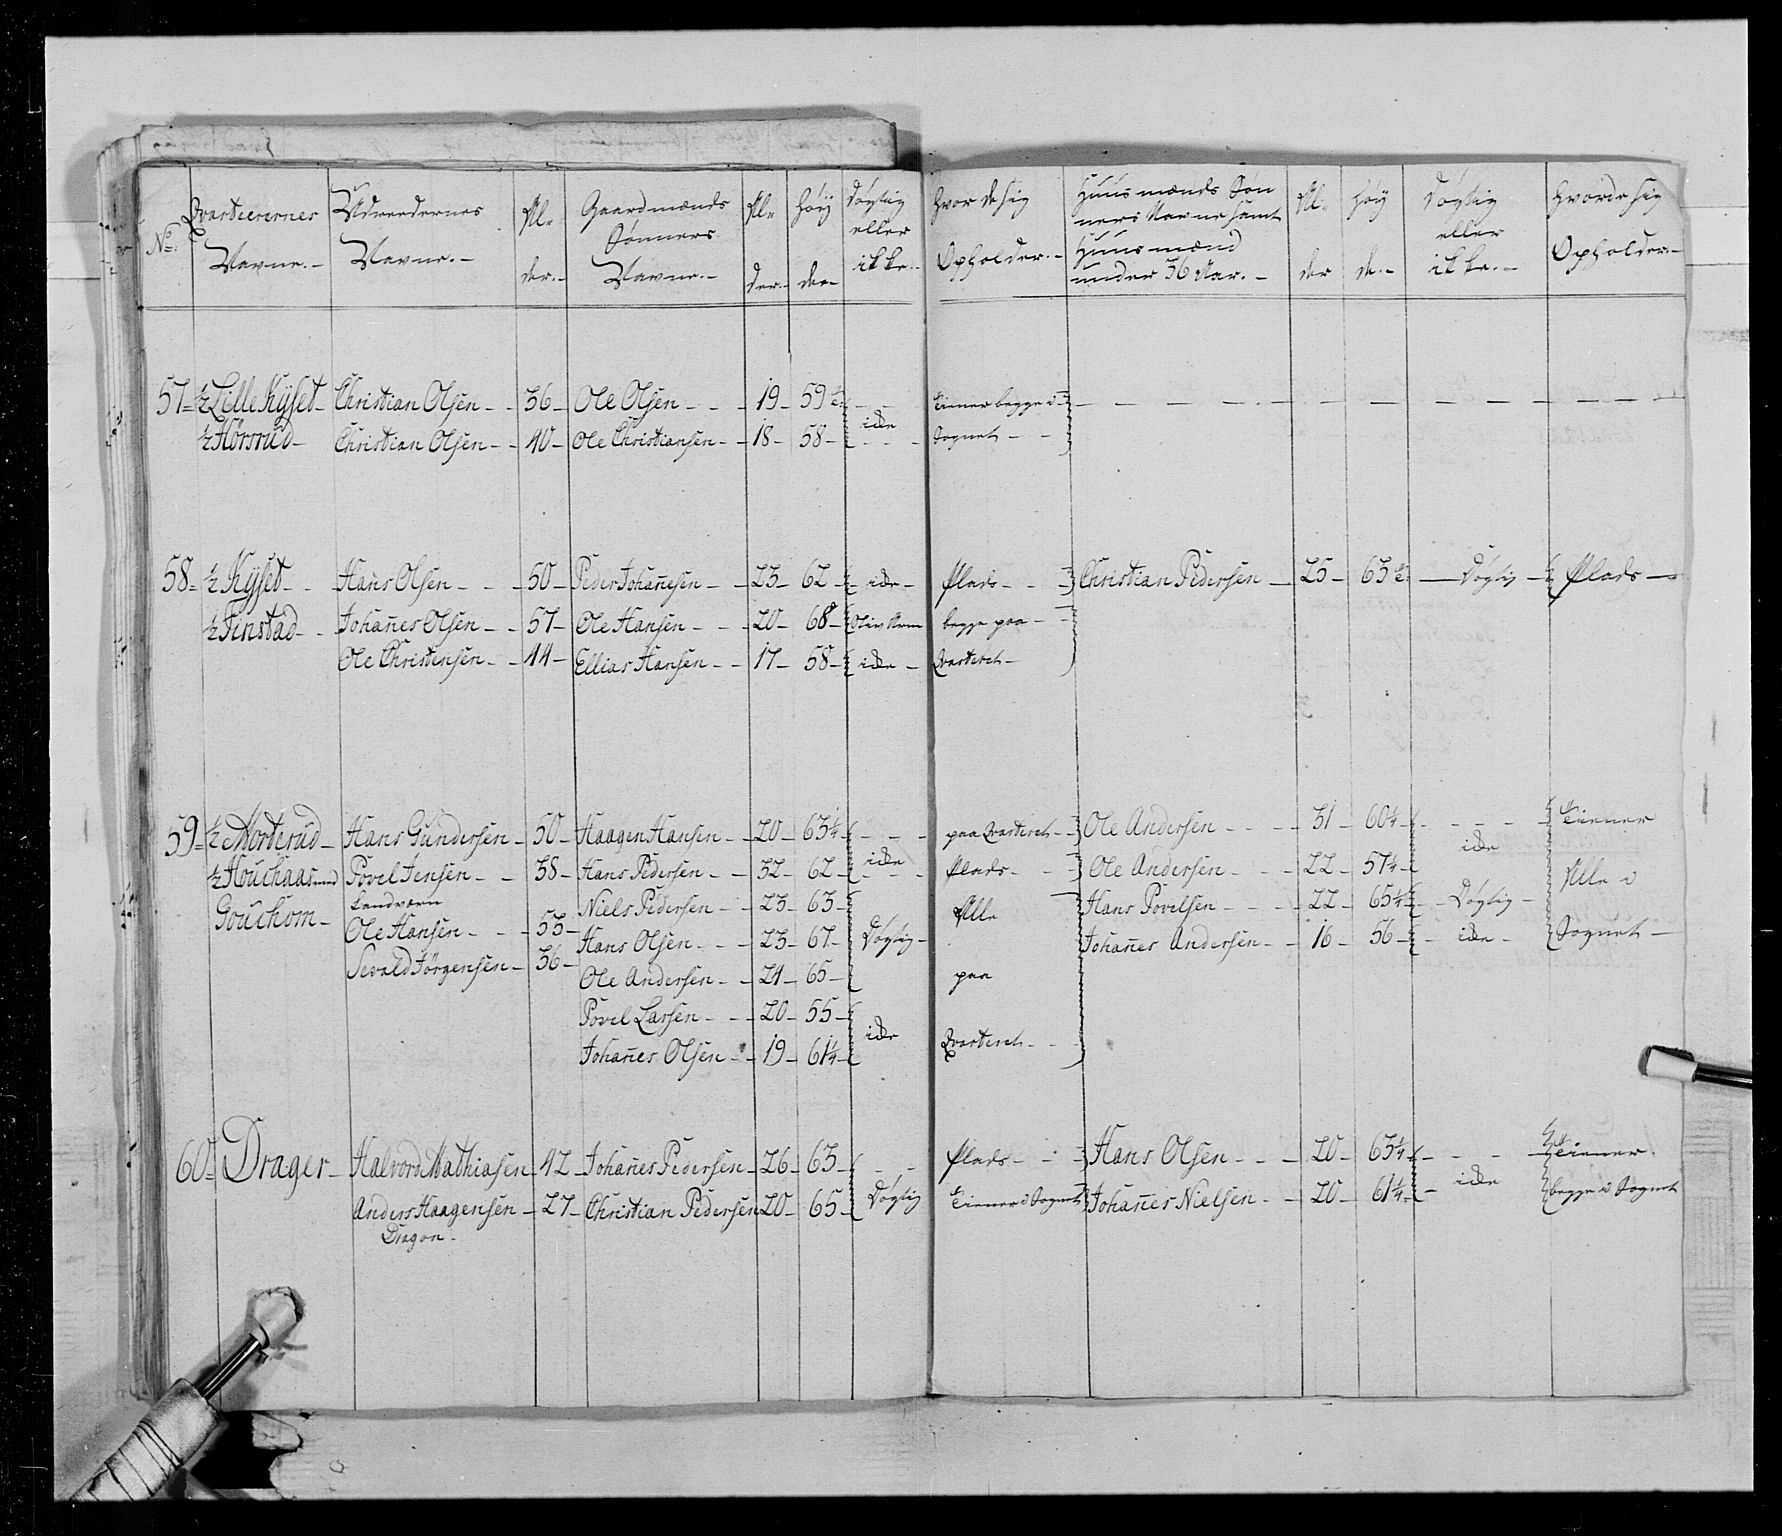 No: Qvarterernes Navne.- Udreedernes Navne.- Al- der.- Gaardmænds Sønners Navne.- Al- der.- høy de- Døgtig eller ikke.- hvor de sig Opholder.- Huusmænds Søn ners Navne samt Huusmænd under 36 Aar.- Al- der høy de.- Døgtig eller ikke.- hvor de sig Opholder.-
57- ½ Lille Kÿset- Christian Olsen - - 36- Ole Olsen - - - 19- 59½ - - tiener begge i - - - -
½ Hörsrud- Christian Olsen - - 40- Ole Christiansen - - 18- 58- ikke Sognet - -
58- ½ Kÿset - - Hans Olsen - - - 50- Peder Johanesen - - 23- 62- ikke- Plads - - - Christian Pedersen - 25- 63½ - Døgtig - Plads -
½ Finstad - - Johanes Olsen - - 57- Ole Hansen - - - 20- 68- begge paa - -
Ole Christensen - - 44- Ellias Hansen - - 17- 58- ikke - Qvarteret -
59- ½ Morterud - Hans Gundersen - 50- Haagen Hansen - - 20- 63¼ - - - paa Qvarteret - Ole Andersen - - - - 31- 60¼ - - - - tiener
½ Houchaas med Povel Jensen - - 38- Hans Pedersen - - 32- 62- ikke Plads - - - Ole Andersen - - - - 22- 57¼ ikke Alle i
Gouchom - Landværn Niels Pedersen - - 23- 63- Alle Hans Povelsen - - - - 22- 65¼ - Døgtig -
Ole Hansen - - - 53- Hans Olsen - - - 23- 67- Døgtig - Johanes Andersen - - 16- 56- - ikke - Sognet -
Sevald Jörgensen - 36- Ole Andersen - - 24- 65- paa
Povel Larsen - - - 20- 55-
Johanes Olsen - - 19- 61¼ ikke Qvarteret - -
60- Drager - Halvord Mathiasen - 42- Johanes Pedersen - 26- 63- - - Plads - - - Hans Olsen - - - 20- 63¼ - - - tiener
Anders Haagensen - 27- Christian Pedersen 20- 65- Døgtig tiener i Sognet Johanes Nielsen - - 20- 61¼ - ikke begge i Sognet
Dragon -